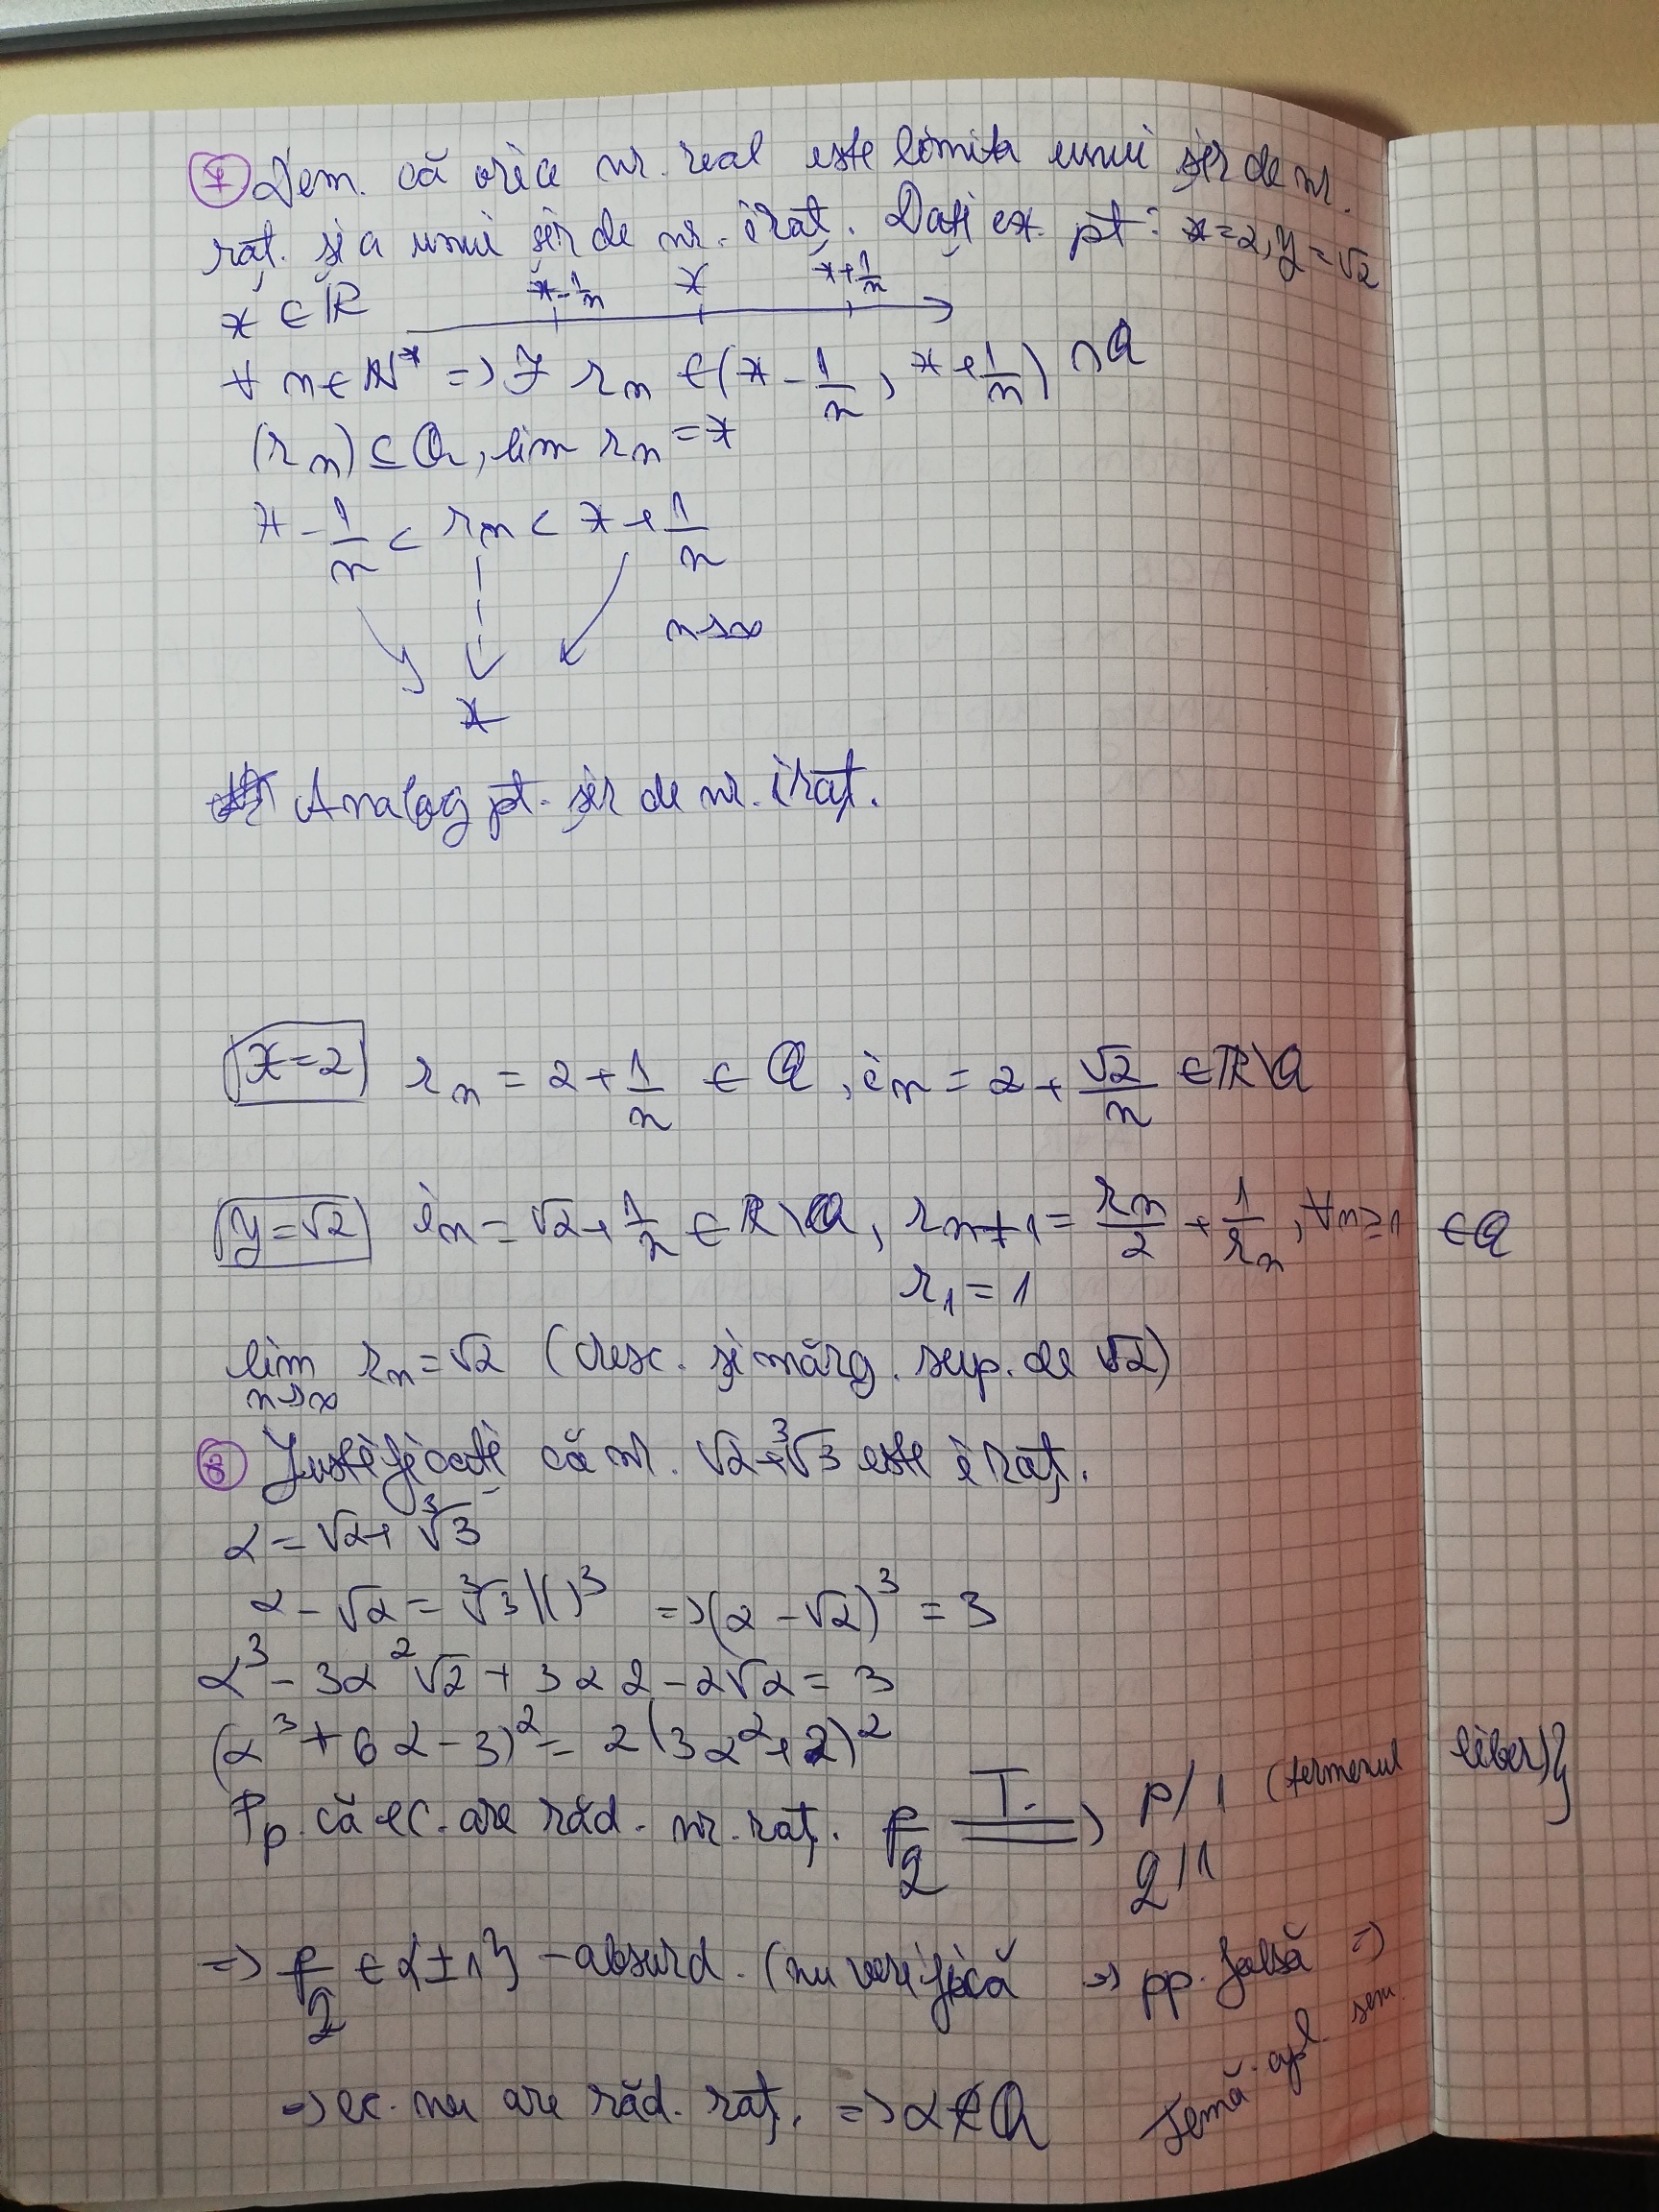 ⑦ Dem. că orice nr. real este limita unui șir de nr.
raț. și a unui șir de nr. iraț. Dați ex. pt: x=2, y=√2
x ∈ ℝ x-1/n x x+1/n
∀ n∈ℕ* => ∃ rₙ ∈(x - 1/n, x+1/n) ∩ ℚ
(rₙ) ⊆ ℚ, lim rₙ = x
x - 1/n < rₙ < x + 1/n
n→∞
x
Analog pt. șir de nr. iraț.
x=2 rₙ = 2+1/n ∈ ℚ, iₙ = 2+√2/n ∈ ℝ\ℚ
y=√2 iₙ = √2+1/n ∈ ℝ\ℚ, rₙ₊₁ = rₙ/2 + 1/rₙ, ∀n≥1 ∈ ℚ
r₁ = 1
lim n→∞ rₙ = √2 (cresc. și mărg. sup. de √2)
⑧ Justificați că nr. √2+∛3 este iraț.
α = √2+∛3
α - √2 = ∛3 |( )³ => (α - √2)³ = 3
α³ - 3α²√2 + 3α2 - 2√2 = 3
(α³ + 6α - 3)² = 2(3α²+2)²
Pp. că ec. are răd. nr. raț. p/q =T.=> p/1 (termenul liber)}
q/1
=> p/q ∈ {±1} - absurd. (nu verifică => pp. falsă =>
=> ec. nu are răd. raț. => α∉ℚ
Temă: apl. sem.